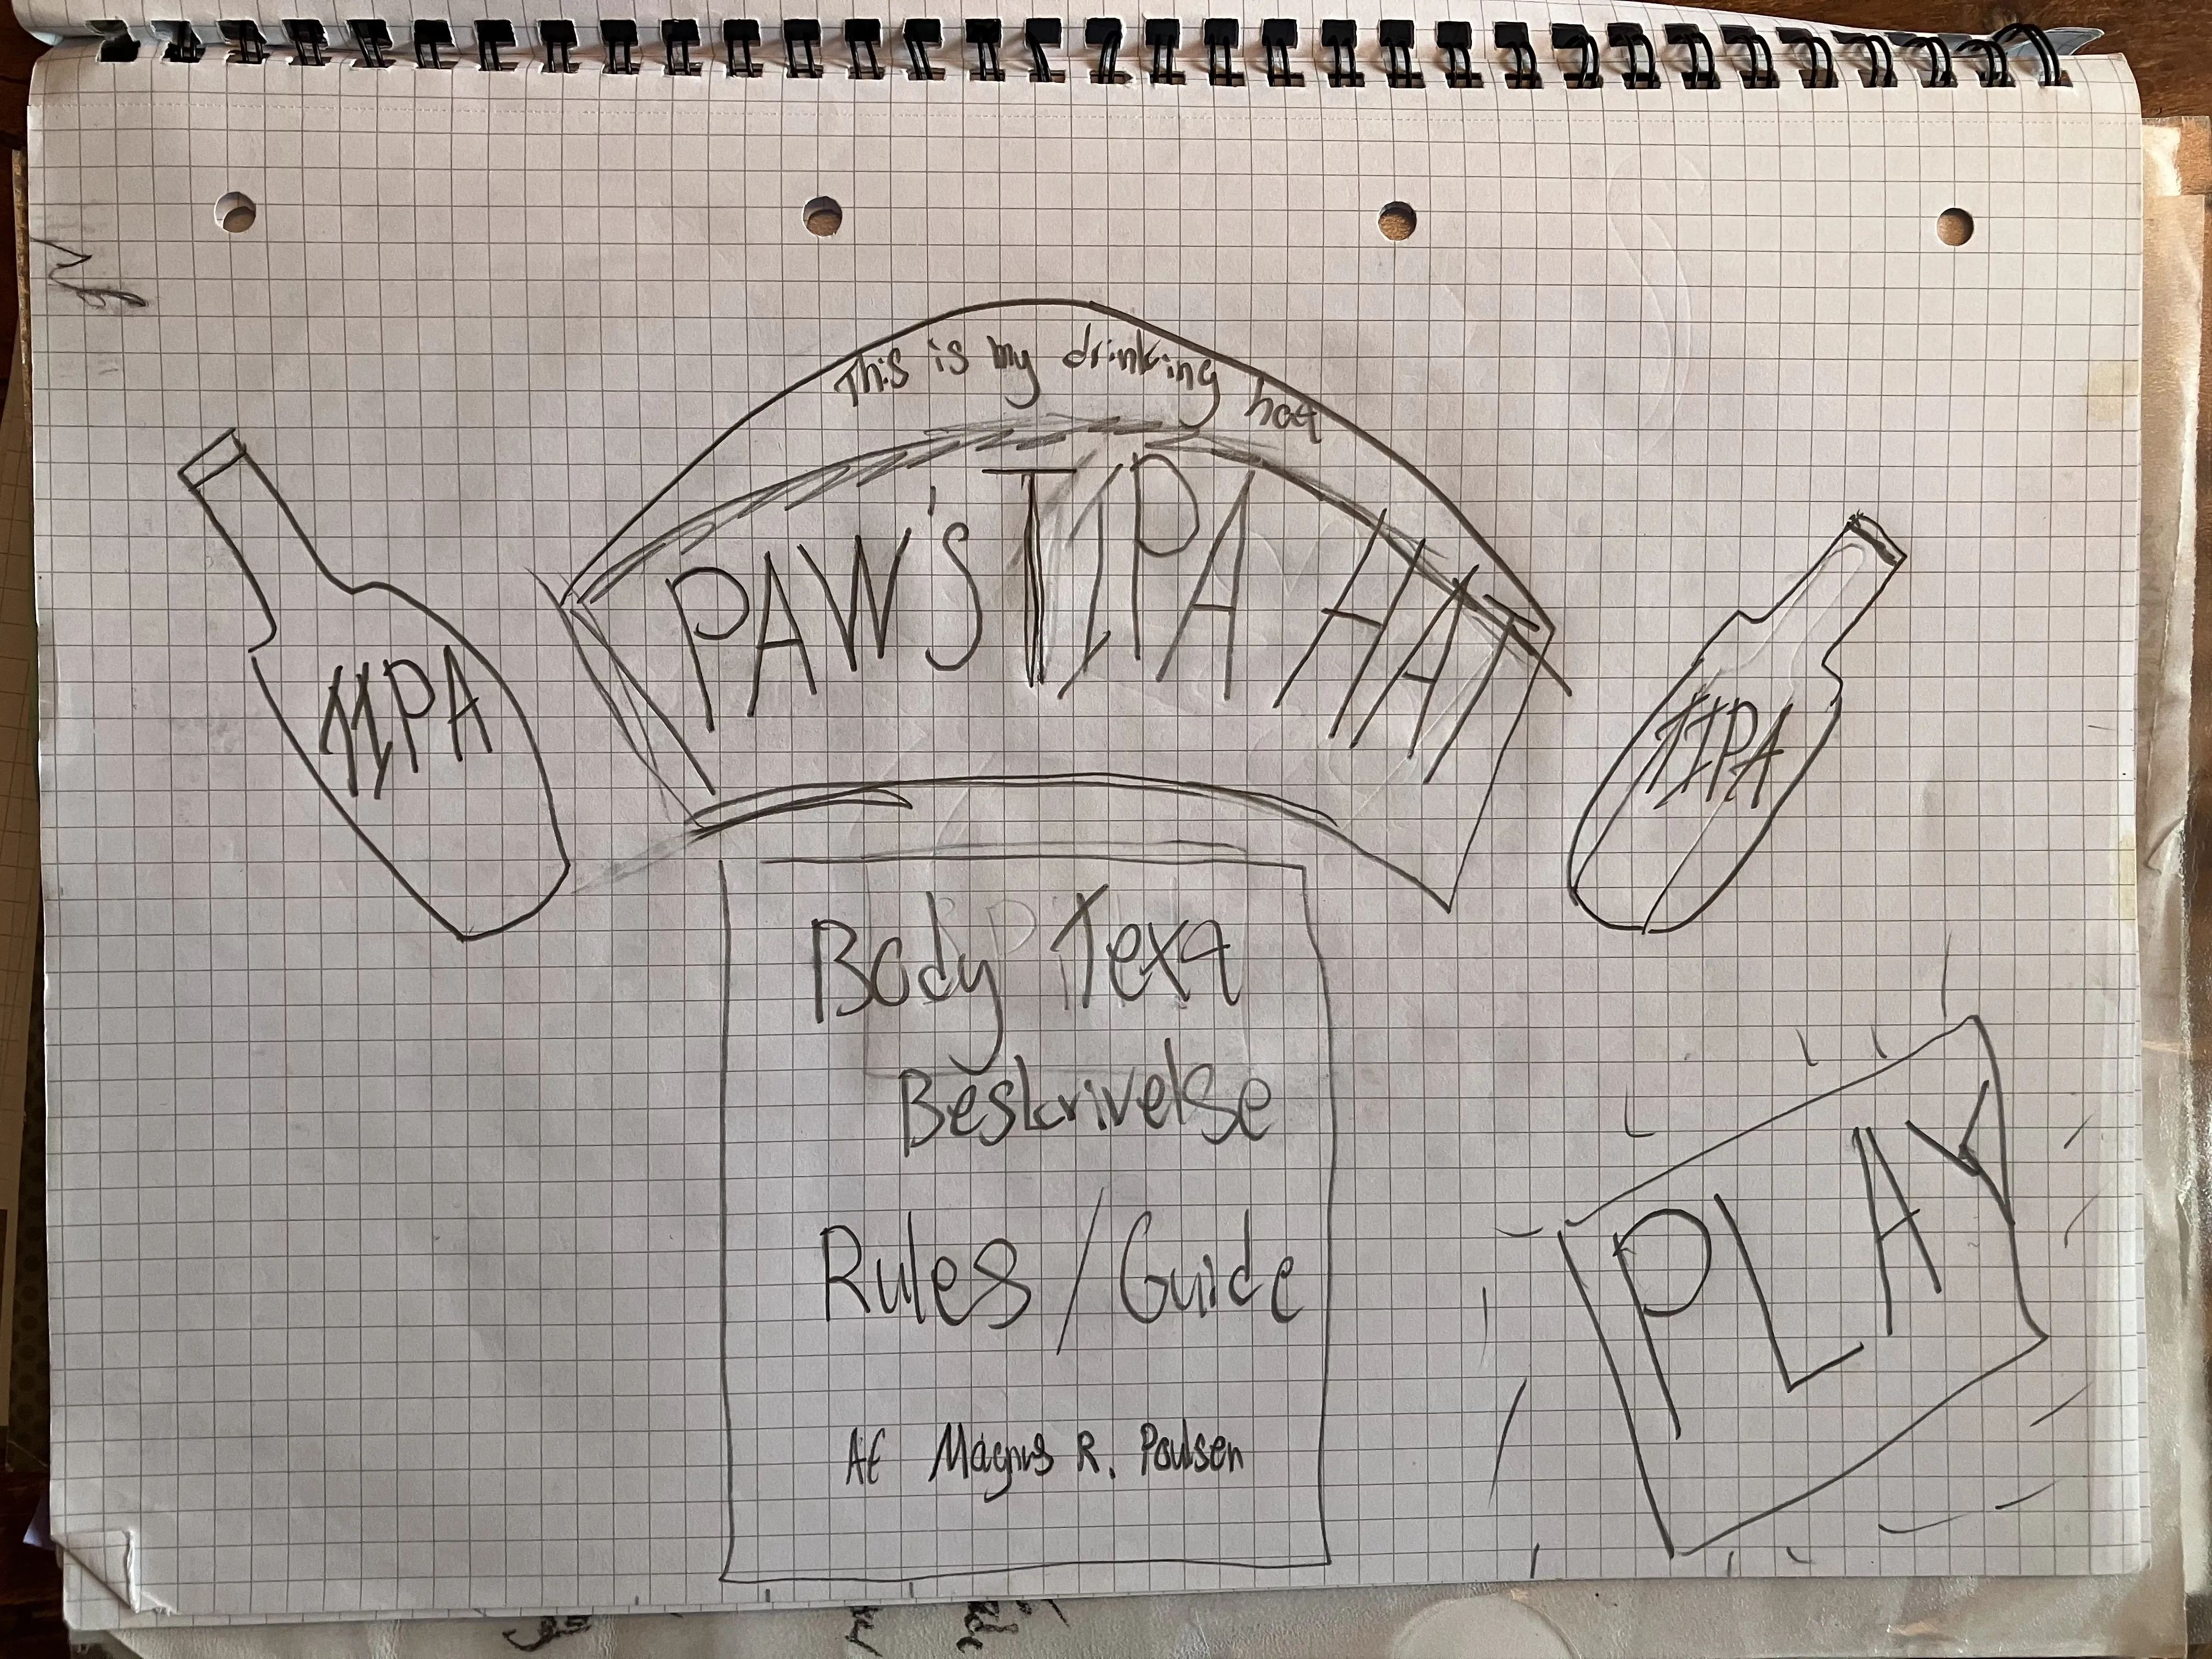 This is my drinking hat
PAW'S TIPA HAT
TIPA
TIPA
Body Text
Beskrivelse
Rules / Guide
Af Magnus R. Poulsen
PLAY